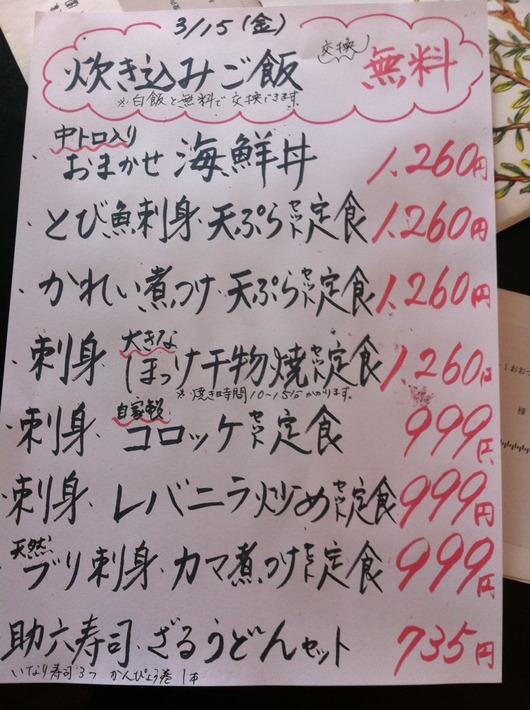 3/15(金)
炊き込みご飯 交換 無料
※白飯と無料で交換できます。
中トロ入り
・おまかせ 海鮮丼 1,260円
・とび魚刺身・天ぷらセット定食 1,260円
・かれい煮つけ・天ぷらセット定食 1,260円
・刺身・大きなほっけ干物焼セット定食 1,260円
※焼き時間10〜15分かかります。
・刺身・自家製コロッケセット定食 999円
・刺身・レバニラ炒めセット定食 999円
・天然ブリ刺身・カマ煮つけセット定食 999円
助六寿司・ざるうどんセット 735円
いなり寿司3つ かんぴょう巻1本
おおつ
様